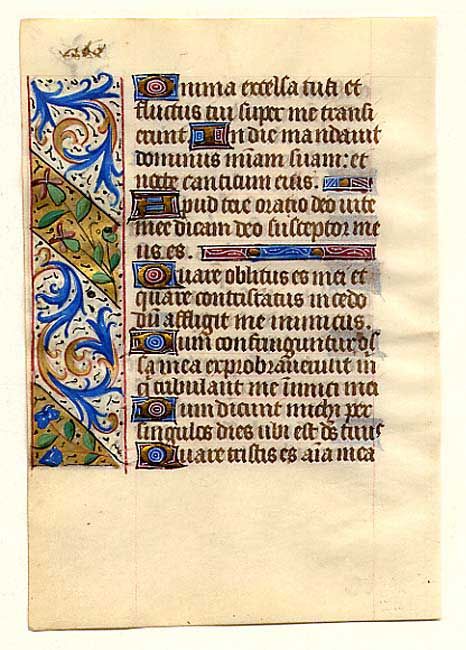 Omnia excelsa tua et
fluctus tui super me transi
erunt In die mandauit
dominus mīam suam: et
nocte canticum eius.
Apud me oratio deo uite
mee dicam deo susceptor me
us es.
Quare oblitus es mei et
quare contristatus incedo
dū affligit me inimicus.
Dum confringuntur os
sa mea exprobrauerunt m
q̄ tribulant me īimici mei
Dum dicunt michi per
singulos dies ubi est d̄s tuus
Quare tristis es aīa mea